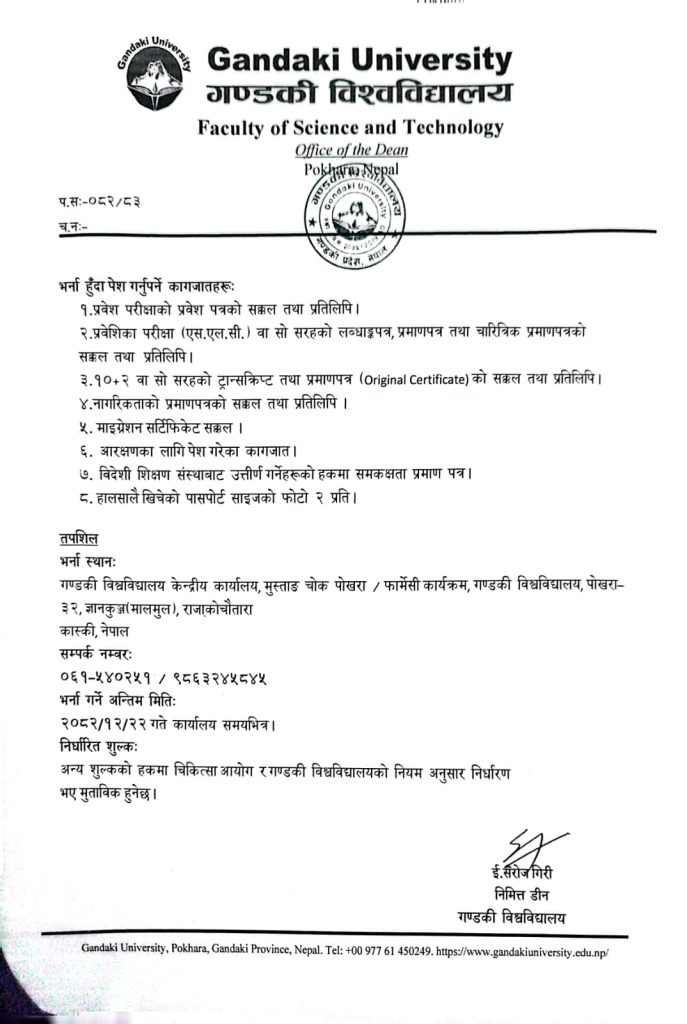 Gandaki University
Gandaki University
गण्डकी विश्वविद्यालय
Faculty of Science and Technology
Office of the Dean
Pokhara, Nepal
गण्डकी विश्वविद्यालय
Gandaki University
गण्डकी प्रदेश, नेपाल
प.सः-०८२/८३
च.नः-
भर्ना हुँदा पेश गर्नुपर्ने कागजातहरूः
१.प्रवेश परीक्षाको प्रवेश पत्रको सक्कल तथा प्रतिलिपि।
२.प्रवेशिका परीक्षा (एस.एल.सी.) वा सो सरहको लब्धाङ्कपत्र, प्रमाणपत्र तथा चारित्रिक प्रमाणपत्रको
सक्कल तथा प्रतिलिपि।
३.१०+२ वा सो सरहको ट्रान्सक्रिप्ट तथा प्रमाणपत्र (Original Certificate) को सक्कल तथा प्रतिलिपि।
४.नागरिकताको प्रमाणपत्रको सक्कल तथा प्रतिलिपि ।
५. माइग्रेशन सर्टिफिकेट सक्कल ।
६. आरक्षणका लागि पेश गरेका कागजात।
७. विदेशी शिक्षण संस्थाबाट उत्तीर्ण गर्नेहरूको हकमा समकक्षता प्रमाण पत्र।
८. हालसालै खिचेको पासपोर्ट साइजको फोटो २ प्रति।
तपशिल
भर्ना स्थानः
गण्डकी विश्वविद्यालय केन्द्रीय कार्यालय, मुस्ताङ चोक पोखरा / फार्मेसी कार्यक्रम, गण्डकी विश्वविद्यालय, पोखरा-
३२, ज्ञानकुञ्ज(मालमुल), राजाकोचौतारा
कास्की, नेपाल
सम्पर्क नम्बरः
०६१-५४०२५१ / ९८६३२४५८४५
भर्ना गर्ने अन्तिम मितिः
२०८२/१२/२२ गते कार्यालय समयभित्र।
निर्धारित शुल्कः
अन्य शुल्कको हकमा चिकित्सा आयोग र गण्डकी विश्वविद्यालयको नियम अनुसार निर्धारण
भए मुताविक हुनेछ।
ई.सरोज गिरी
निमित्त डीन
गण्डकी विश्वविद्यालय
Gandaki University, Pokhara, Gandaki Province, Nepal. Tel: +00 977 61 450249. https://www.gandakiuniversity.edu.np/